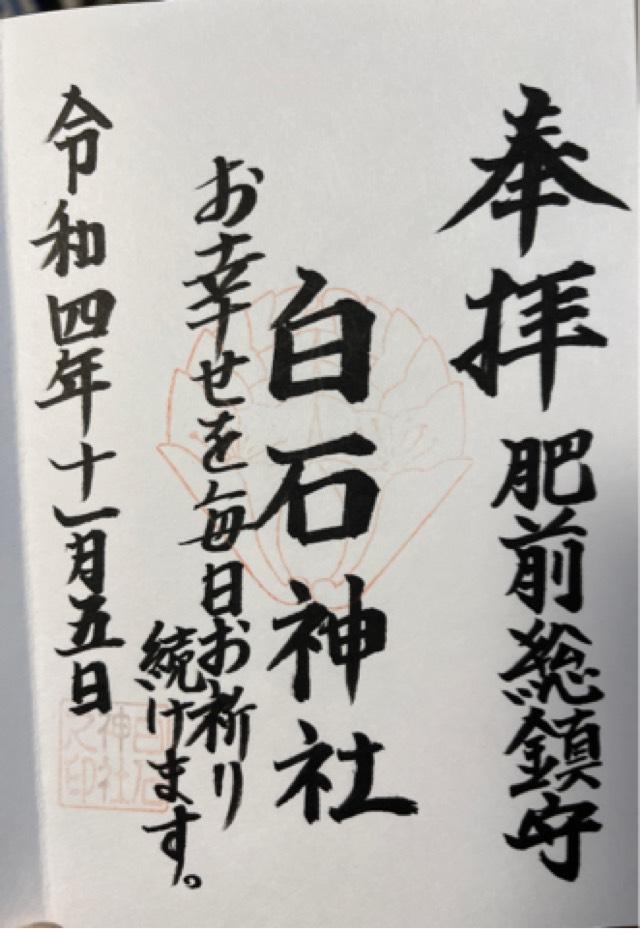 奉拝 肥前総鎮守
白石神社
お幸せを毎日お祈り
続けます。
令和四年十一月五日
白石
神社
之印